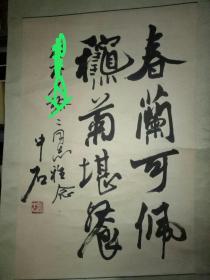 春蘭可佩
秋菊堪餐
二同志雅念
中石